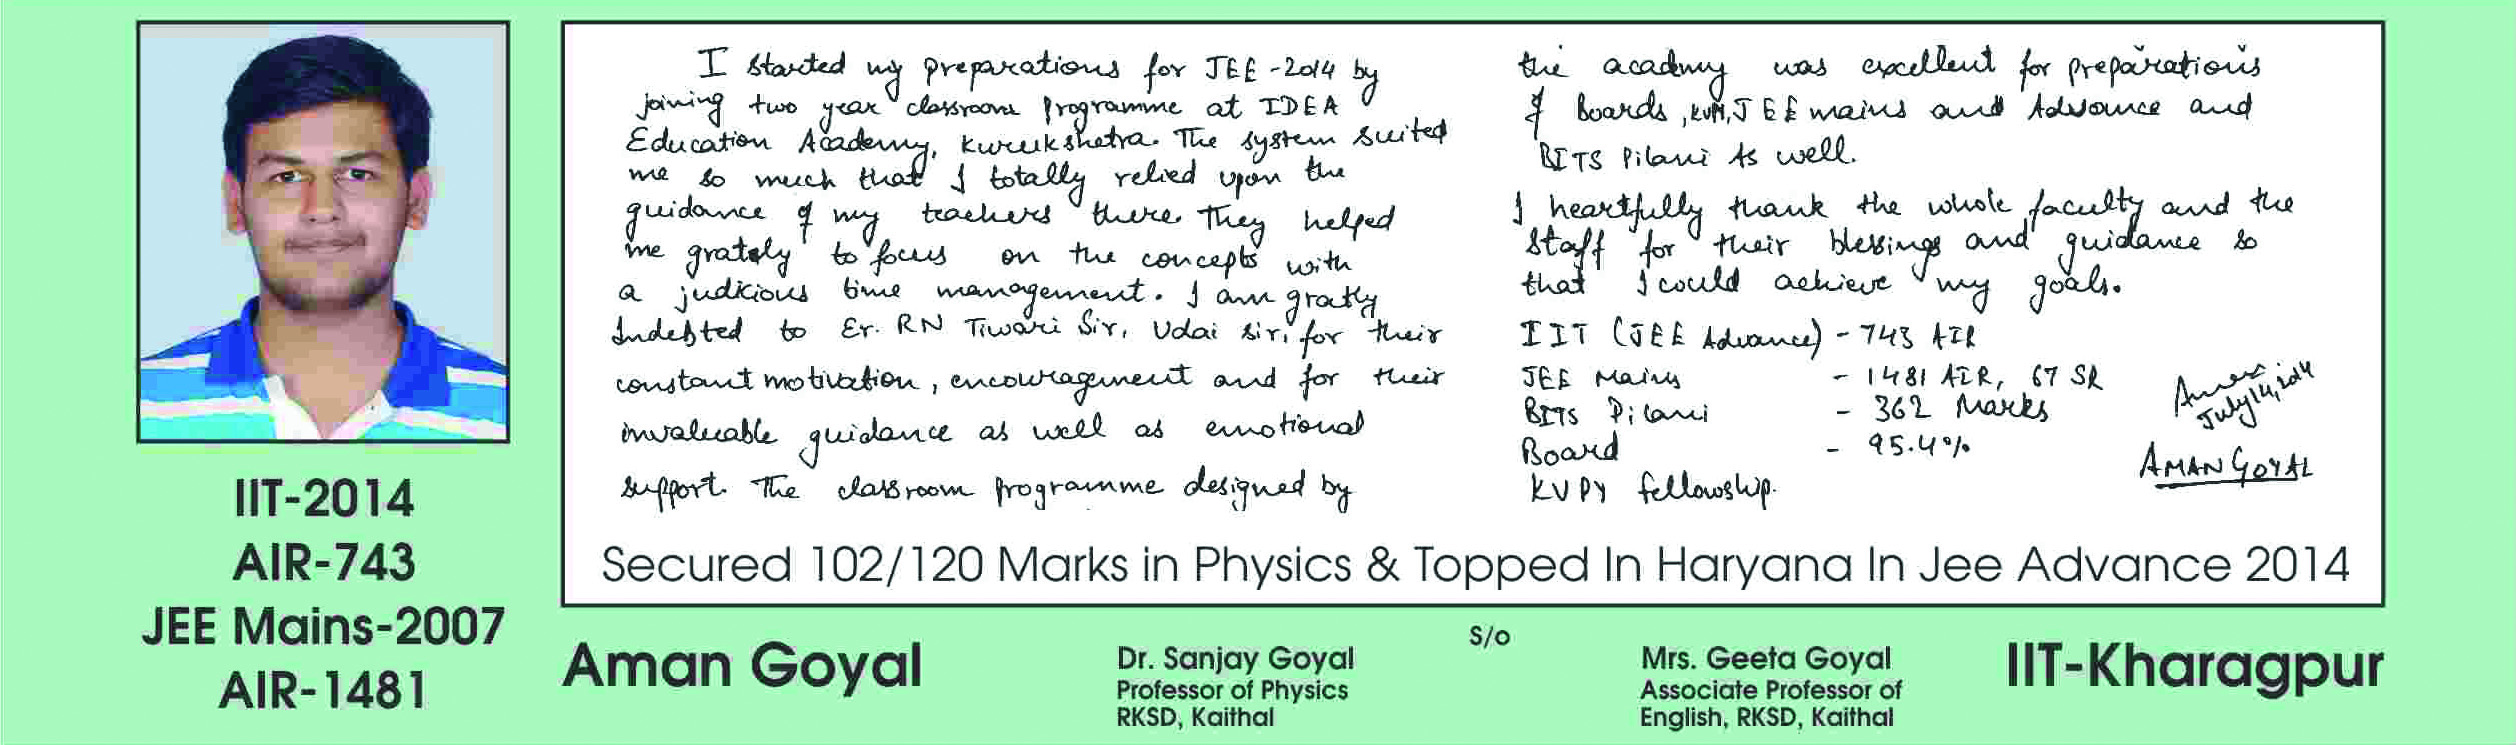 I started my preparations for JEE-2014 by
joining two year classroom programme at IDEA
Education Academy, Kurukshetra. The system suited
me so much that I totally relied upon the
guidance of my teachers there. They helped
me grately to focus on the concepts with
a judicious time management. I am gratly
Indebted to Er. RN Tiwari Sir, Udai sir, for their
constant motivation, encouragement and for their
invaluable guidance as well as emotional
support. The classroom programme designed by
the academy was excellent for preparations
of Boards, KVPY, JEE mains and Advance and
BITS Pilani As well.
I heartfully thank the whole faculty and the
staff for their blessings and guidance so
that I could achieve my goals.
IIT (JEE Advance) - 743 AIR
JEE Mains - 1481 AIR, 67 SR
BITS Pilani - 362 Marks
Board - 95.4%
KVPY fellowship.
Aman
July 14, 2014
AMAN GOYAL
Secured 102/120 Marks in Physics & Topped In Haryana In Jee Advance 2014
IIT-2014
AIR-743
JEE Mains-2007
AIR-1481
Aman Goyal
Dr. Sanjay Goyal
Professor of Physics
RKSD, Kaithal
S/o
Mrs. Geeta Goyal
Associate Professor of
English, RKSD, Kaithal
IIT-Kharagpur